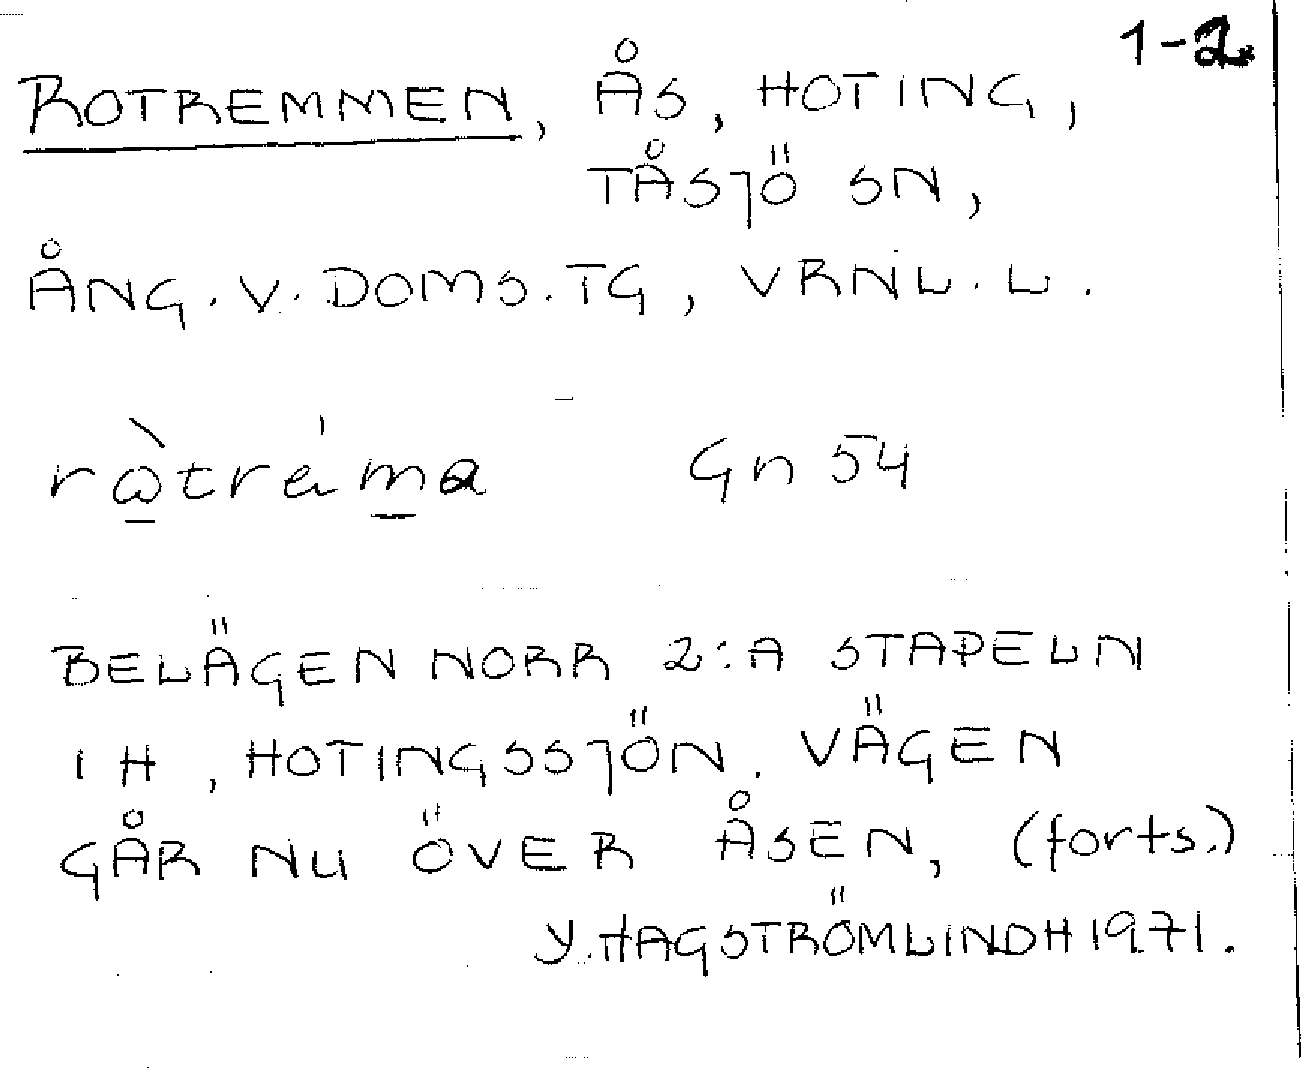 1-2.
ROTREMMEN, ÅS, HOTING,
TÅSJÖ SN,
ÅNG. V. DOMS. TG, VRNL. L.
ròtréma Gn 54
BELÄGEN NORR 2:A STAPELN
I H, HOTINGSSJÖN. VÄGEN
GÅR NU ÖVER ÅSEN, (forts.)
Y. HAGSTRÖMLINDH 1971.